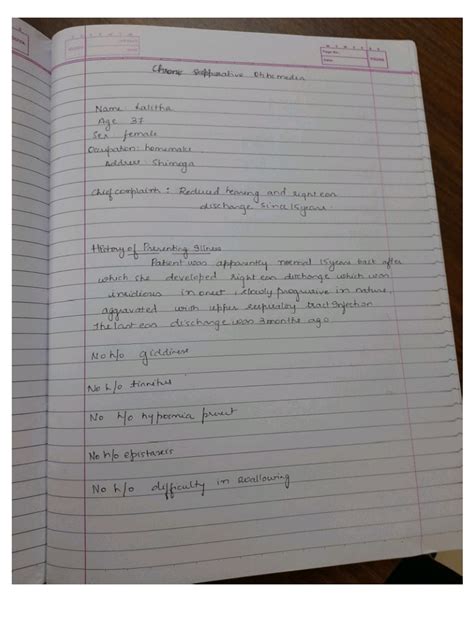 Chronic Suppurative Otitis media
Name: Lalitha
Age 37
Sex female
Occupation: homemaker
Address: Shimoga
Chief complaints: Reduced hearing and right ear
discharge since 15 years.
History of Presenting Illness
Patient was apparently normal 15 years back after
which she developed right ear discharge which was
insidious in onset, slowly progressive in nature,
aggravated with upper respiratory tract infection
The last ear discharge was 3 months ago.
No h/o giddiness
No h/o tinnitus
No h/o
No h/o epistaxis
No h/o difficulty in swallowing